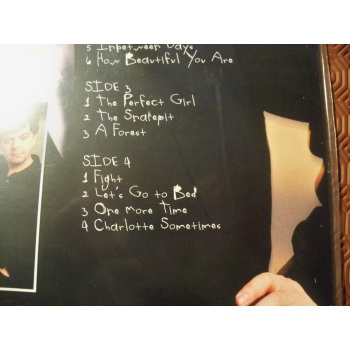 5 Inbetween Days
6 How Beautiful You Are
SIDE 3
1 The Perfect Girl
2 The Snakepit
3 A Forest
SIDE 4
1 Fight
2 Let's Go to Bed
3 One More Time
4 Charlotte Sometimes